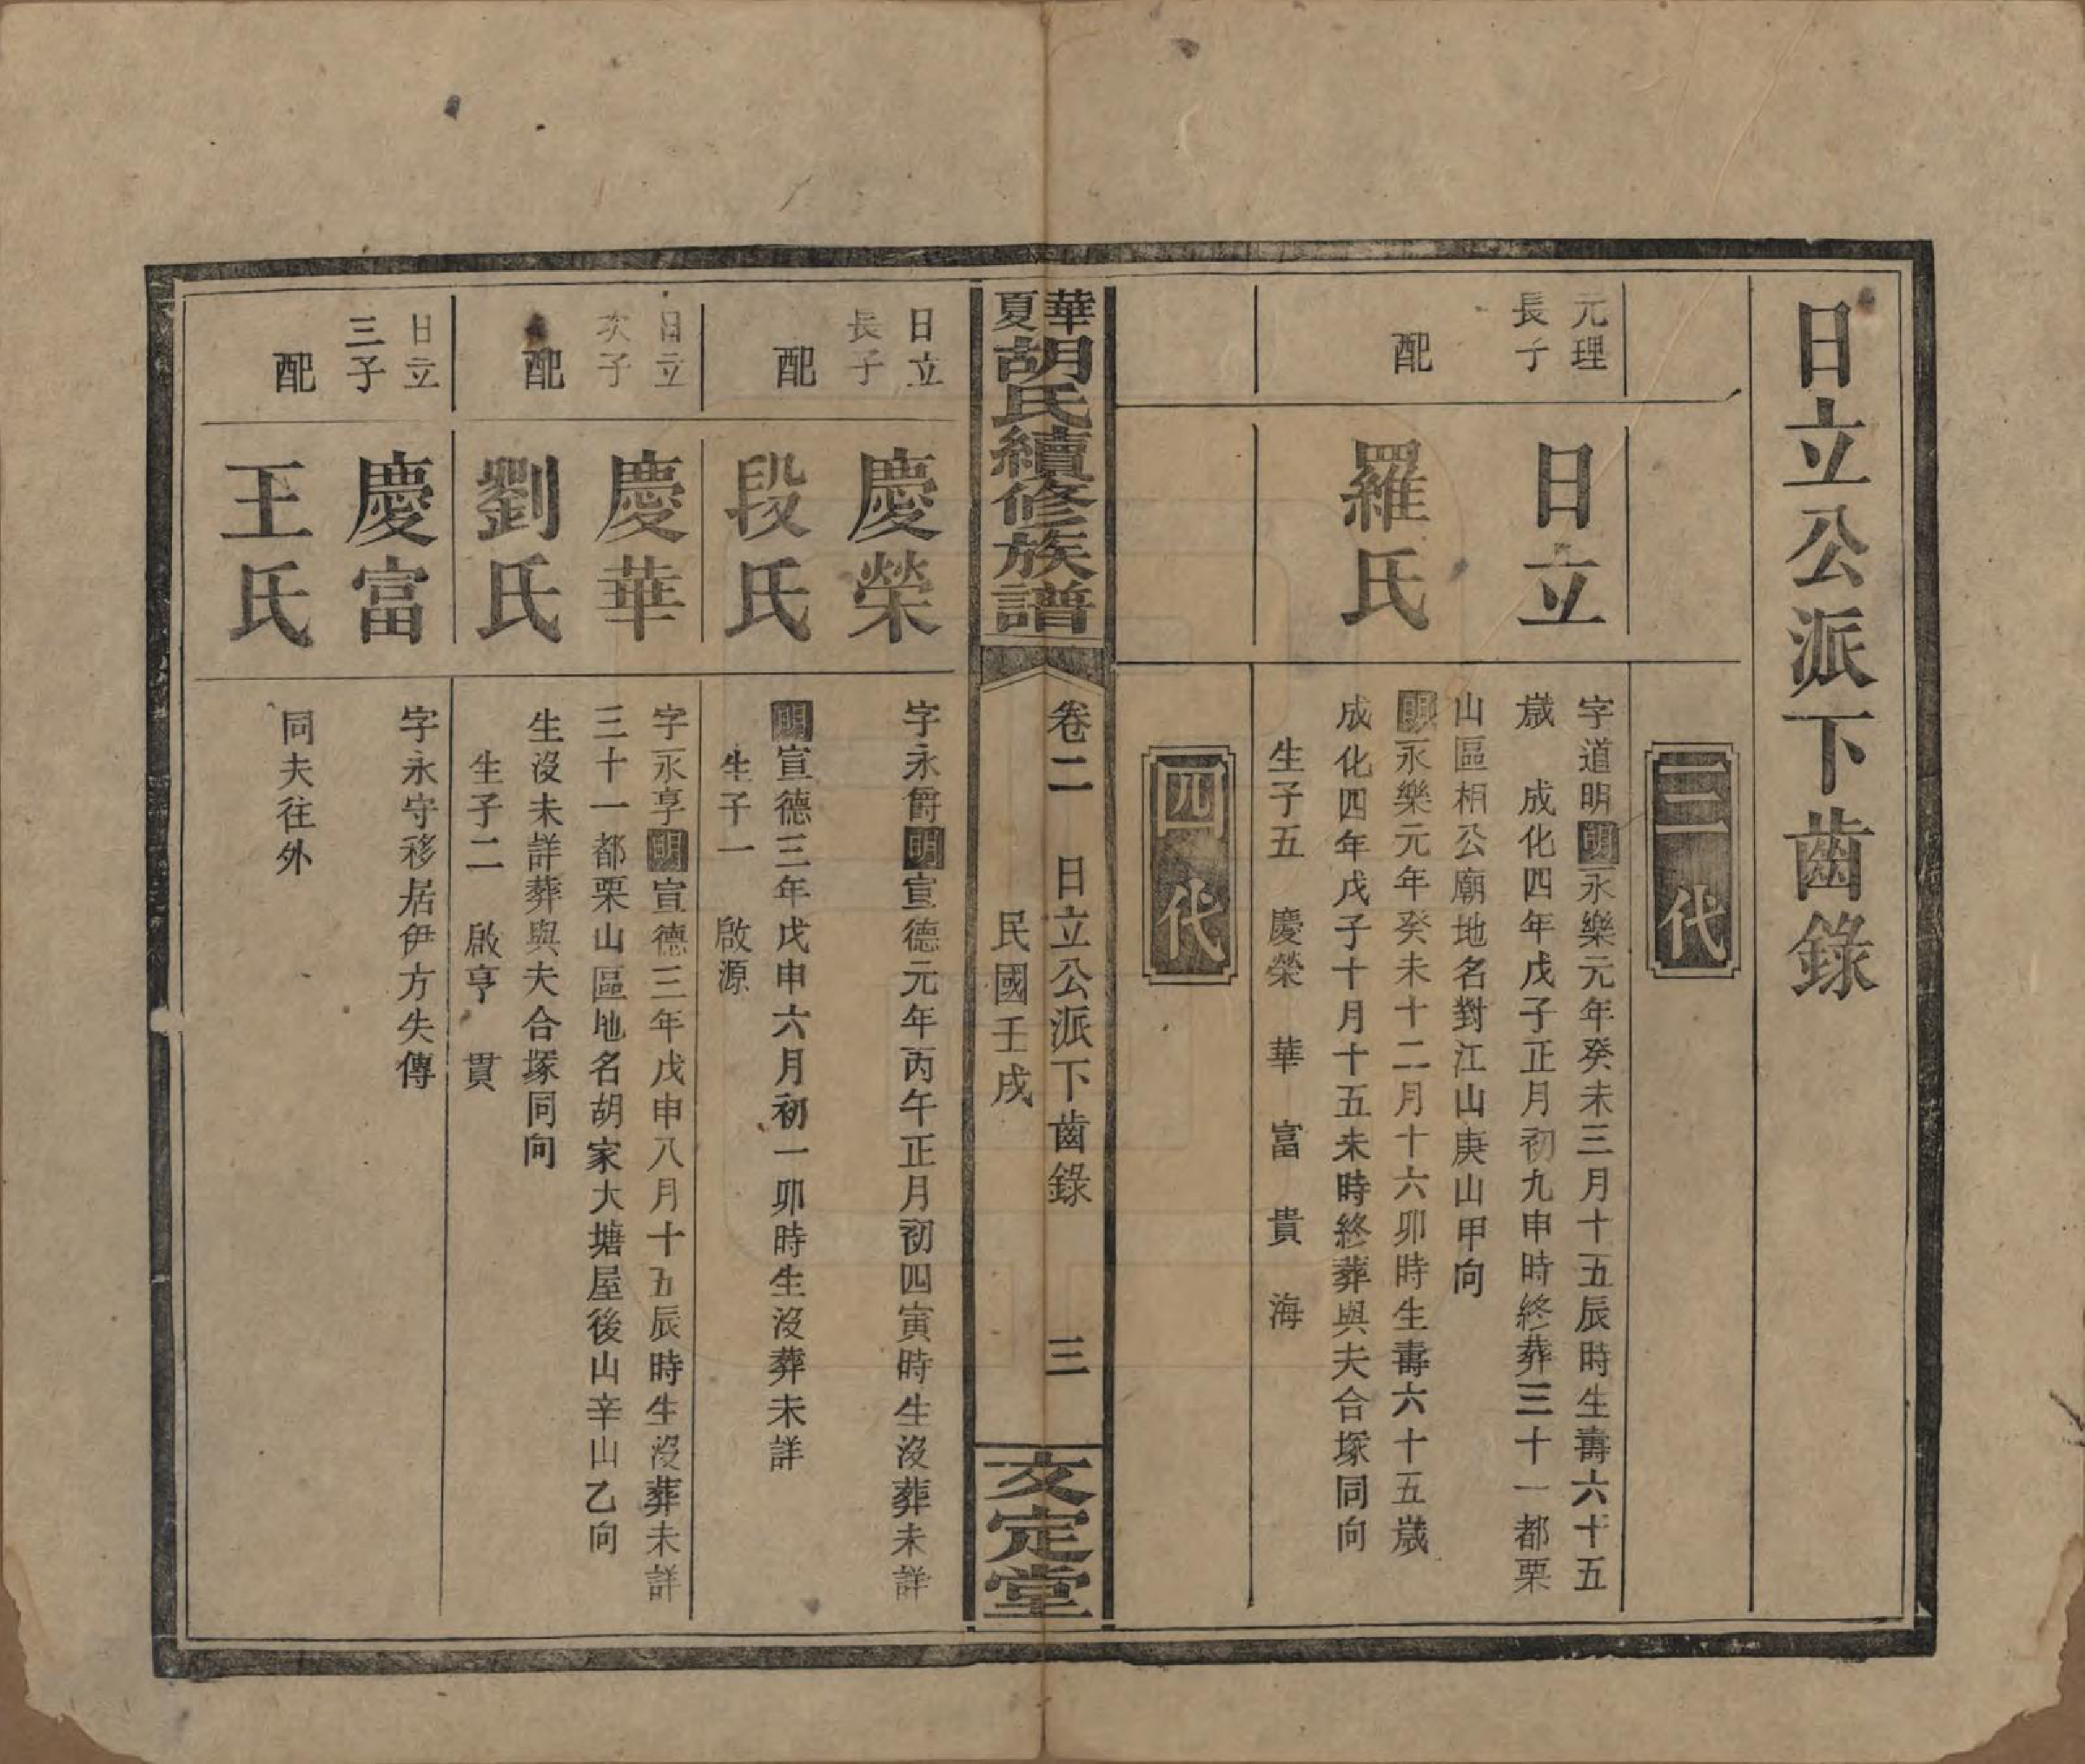 日立公派下齒錄
三代
元理
長子
日立
字道明明永樂元年癸未三月十五辰時生壽六十五
歲　成化四年戊子正月初九申時終葬三十一都栗
山區相公廟地名對江山庚山甲向
配
羅氏
明永樂元年癸未十二月十六卯時生壽六十五歲
成化四年戊子十月十五未時終葬與夫合塚同向
生子五　慶榮　華　富　貴　海
四代
華夏胡氏續修族譜
卷二　日立公派下齒錄　三
民國壬戌
文定堂
日立
長子
慶榮
字永爵明宣德元年丙午正月初四寅時生沒葬未詳
配
段氏
明宣德三年戊申六月初一卯時生沒葬未詳
生子一　啟源
日立
次子
慶華
字永亨明宣德三年戊申八月十五辰時生沒葬未詳
三十一都栗山區地名胡家大塘屋後山辛山乙向
配
劉氏
生沒未詳葬與夫合塚同向
生子二　啟亨　貫
日立
三子
慶富
字永守移居伊方失傳
配
王氏
同夫往外